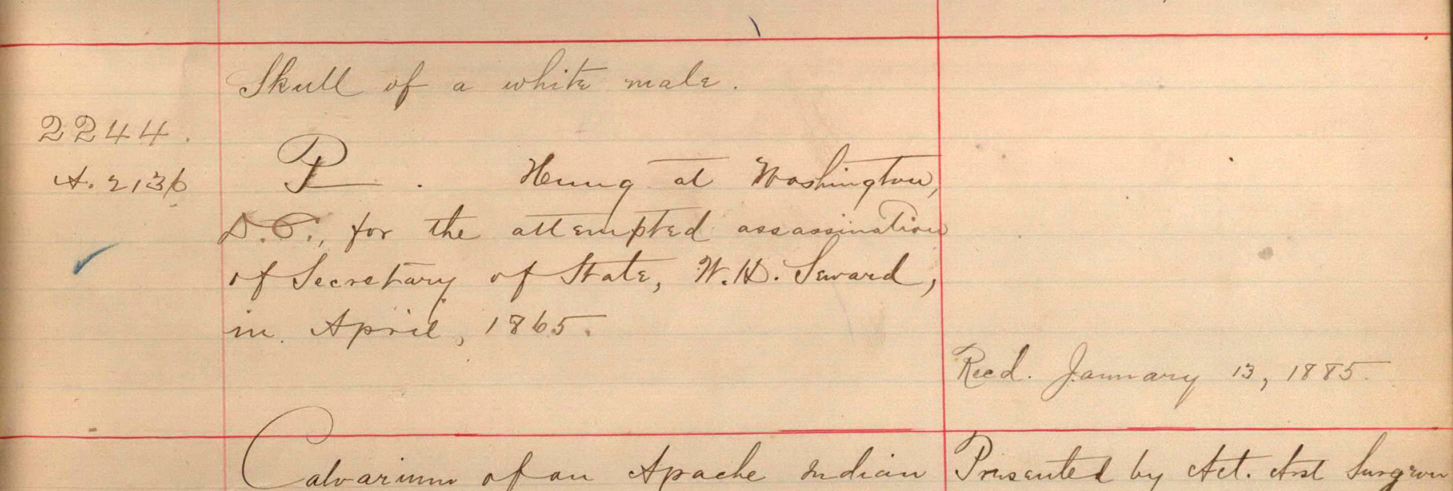 Skull of a white male.
2244.
A. 2136
P. Hung at Washington,
D.C., for the attempted assassination
of Secretary of State, W.H. Seward,
in April, 1865.
Recd. January 13, 1885.
Calvarium of an Apache Indian
Presented by Act. Asst Surgeon